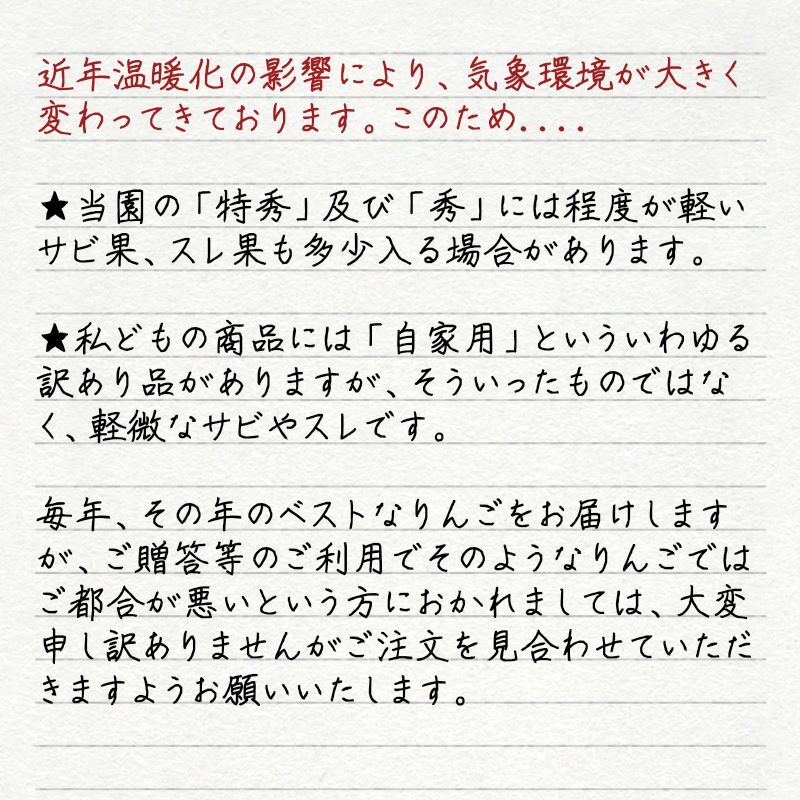 近年温暖化の影響により、気象環境が大きく
変わってきております。このため....
★当園の「特秀」及び「秀」には程度が軽い
サビ果、スレ果も多少入る場合があります。
★私どもの商品には「自家用」といういわゆる
訳あり品がありますが、そういったものではな
く、軽微なサビやスレです。
毎年、その年のベストなりんごをお届けします
が、ご贈答等のご利用でそのようなりんごでは
ご都合が悪いという方におかれましては、大変
申し訳ありませんがご注文を見合わせていただ
きますようお願いいたします。